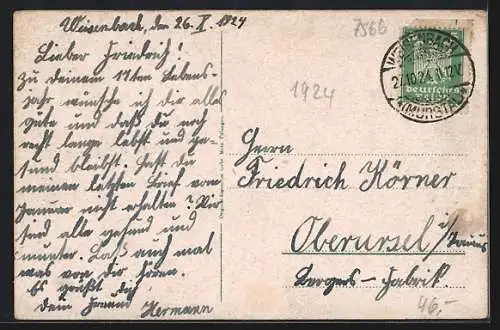 Weisenbach, den 26. X. 1924
Lieber Friedrich!
Zu deinem 11ten Lebens-
jahr wünsche ich dir alles
gute und daß du noch
recht lange lebst und ge-
sund bleibst. Hast du
meinen letzten Brief vom
Januar nicht erhalten? Wir
sind alle gesund und
munter. Laß auch mal
was von dir hören.
Es grüßt dich
dein Freund Hermann
7566
1924
WEISENBACH
27.10.24. 11-12V
(MURGTAL)
Deutsches
Reich
Herrn
Friedrich Körner
Oberursel i/Taunus
Bergers-Fabrik.
46,-